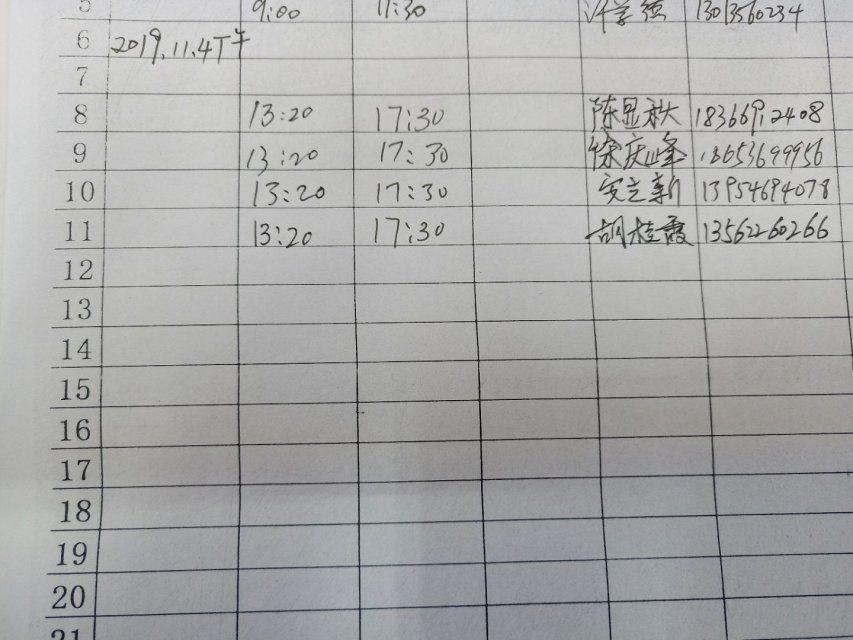 5 9:00 11:30 许学强 13013560234
6 2019.11.4下午
7
8 13:20 17:30 陈显秋 18366912408
9 13:20 17:30 徐庆峰 13653699956
10 13:20 17:30 安立新 13954694078
11 13:20 17:30 胡桂霞 13562260266
12
13
14
15
16
17
18
19
20
21